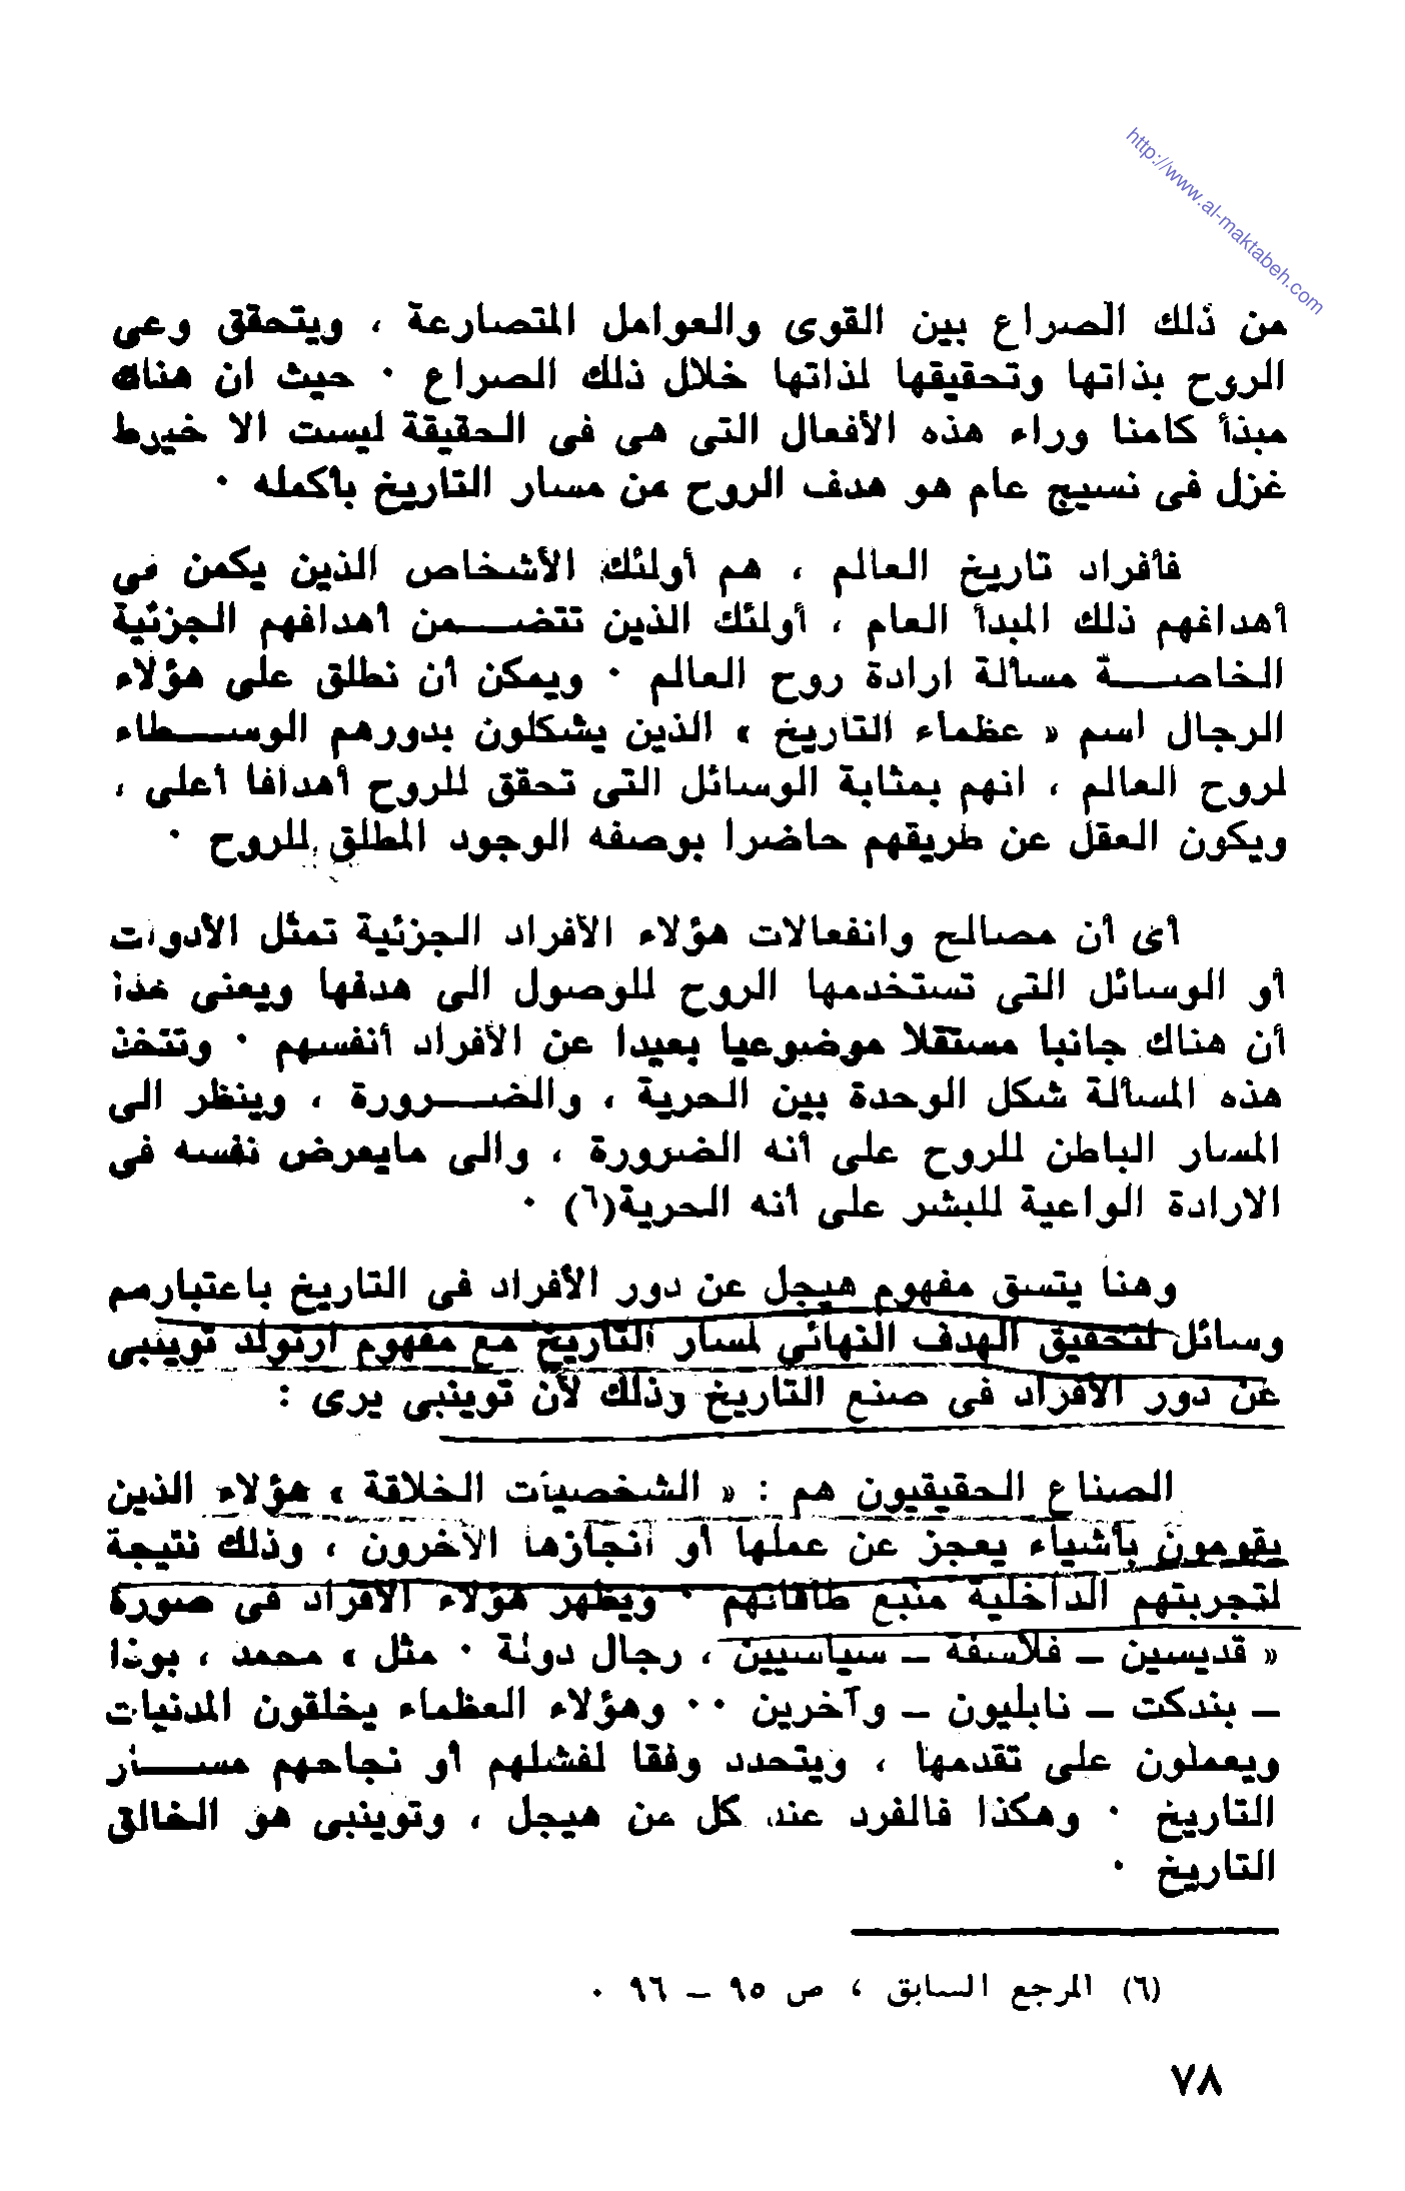 http://www.al-maktabeh.com
من ذلك الصراع بين القوى والعوامل المتصارعة ، ويتحقق وعى
الروح بذاتها وتحقيقها لذاتها خلال ذلك الصراع · حيث ان هناك
مبدأ كامنا وراء هذه الأفعال التى هى فى الحقيقة ليست الا خيوط
غزل فى نسيج عام هو هدف الروح من مسار التاريخ بأكمله ·
فأفراد تاريخ العالم ، هم أولئك الأشخاص الذين يكمن فى
أهدافهم ذلك المبدأ العام ، أولئك الذين تتضمن أهدافهم الجزئية
الخاصة مسألة ارادة روح العالم · ويمكن أن نطلق على هؤلاء
الرجال اسم « عظماء التاريخ » الذين يشكلون بدورهم الوسطاء
لروح العالم ، انهم بمثابة الوسائل التى تحقق للروح أهدافا أعلى ،
ويكون العقل عن طريقهم حاضرا بوصفه الوجود المطلق للروح ·
أى أن مصالح وانفعالات هؤلاء الأفراد الجزئية تمثل الأدوات
أو الوسائل التى تستخدمها الروح للوصول الى هدفها ويعنى هذا
أن هناك جانبا مستقلا موضوعيا بعيدا عن الأفراد أنفسهم · وتتخذ
هذه المسألة شكل الوحدة بين الحرية ، والضرورة ، وينظر الى
المسار الباطن للروح على أنه الضرورة ، والى مايعرض نفسه فى
الارادة الواعية للبشر على أنه الحرية(٦) ·
وهنا يتسق مفهوم هيجل عن دور الأفراد فى التاريخ باعتبارهم
وسائل لتحقيق الهدف النهائي لمسار التاريخ مع مفهوم ارنولد توينبى
عن دور الأفراد فى صنع التاريخ وذلك لأن توينبى يرى :
الصناع الحقيقيون هم : « الشخصيات الخلاقة » هؤلاء الذين
يقومون بأشياء يعجز عن عملها أو انجازها الآخرون ، وذلك نتيجة
لتجربتهم الداخلية منبع طاقاتهم · ويظهر هؤلاء الأفراد فى صورة
« قديسين – فلاسفة – سياسيين ، رجال دولة · مثل » محمد ، بوذا
– بندكت – نابليون – وآخرين ·· وهؤلاء العظماء يخلقون المدنيات
ويعملون على تقدمها ، ويتحدد وفقا لفشلهم أو نجاحهم مسار
التاريخ · وهكذا فالفرد عند كل من هيجل ، وتوينبى هو الخالق
التاريخ ·
(٦) المرجع السابق ، ص ٩٥ – ٩٦ ·
٧٨